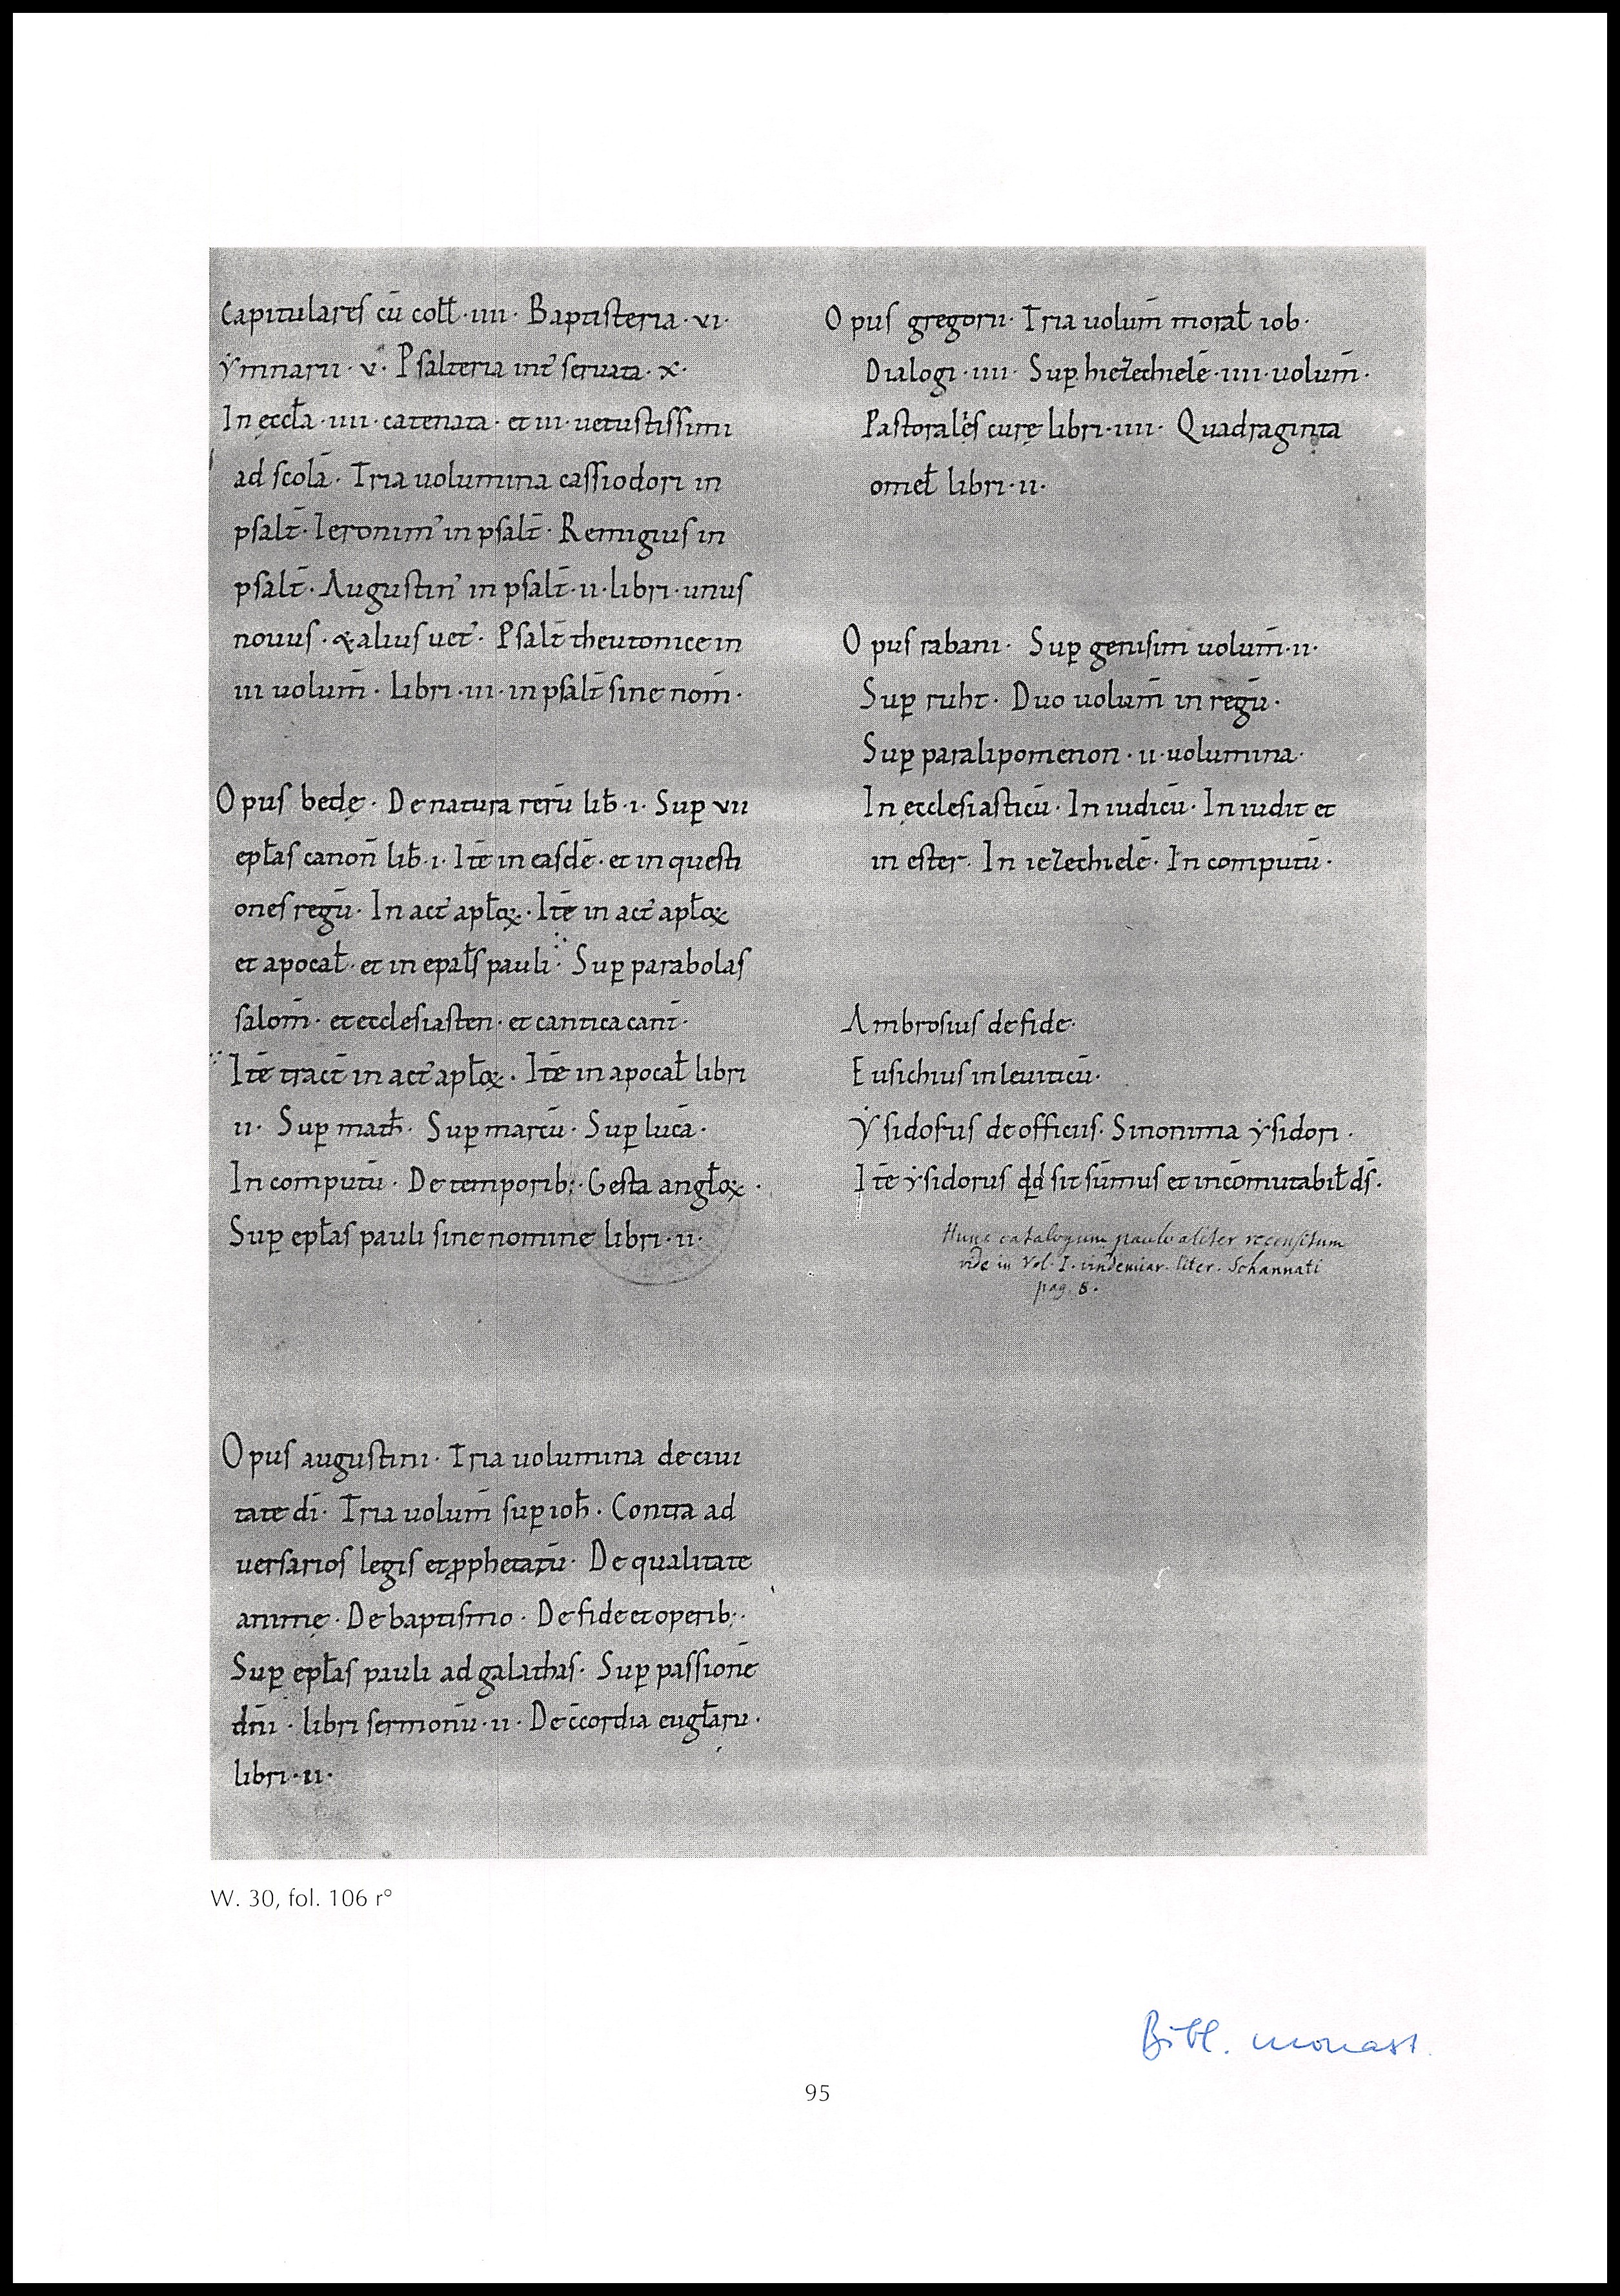 Capitulares cū coll̄ · iiii · Baptisteria · vi ·
ẏmnarii · v · Psalteria int̄ seruata · x ·
In ęccl̄a · iiii · catenata · et iii · uetustissimi
ad scolā · Tria uolumina cassiodori in
psalt̄ · Ieronim᾽ in psalt̄ · Remigius in
psalt̄ · Augustin᾽ in psalt̄ · ii · libri · unus
nouus · & alius uet᾽ · Psalt̄ theutonice in
iii uolum̄ · Libri · iii · in psalt̄ sine nom̄ ·
Opus bedę · De natura rerū lib̄ · i · Sup̱ vii
epl̄as canon̄ lib̄ · i · Itē in easdē · et in questi
ones regū · In act᾽ apl̄oꝝ · Itē in act᾽ apl̄oꝝ
et apocal̄ · et in epal̄s pauli · Sup̱ parabolas
salom̄ · et ecclesiasten · et cantica cant̄ ·
Itē tract̄ in act᾽ apl̄oꝝ · Itē in apocal̄ libri
ii · Sup̱ math̄ · Sup̱ marcū · Sup̱ lucā ·
In computū · De temporib; · Gesta angl̄oꝝ ·
Sup̱ epl̄as pauli sine nomine libri · ii ·
Opus augustini · Tria uolumina de ciui
tate dī · Tria uolum̄ sup̱ ioh̄ · Contra ad
uersarios legis et ꝓphetarū · De qualitate
animę · De baptismo · De fide et operib; ·
Sup̱ epl̄as pauli ad galathas · Sup̱ passionē
dn̄i · libri sermonū · ii · De c̄cordia eugl̄arū ·
libri · ii ·
Opus gregorii · Tria uolum̄ moral̄ iob ·
Dialogi · iiii · Sup̱ hiezechielē · iiii · uolum̄ ·
Pastorales curę libri · iiii · Quadraginta
omel̄ libri · ii ·
Opus rabani · Sup̱ genisim uolum̄ · ii ·
Sup̱ ruht · Duo uolum̄ in regū ·
Sup̱ paralipomenon · ii · uolumina ·
In ęcclesiasticū · In iudicū · In iudit et
in ester · In iezechielē · In computū ·
Ambrosius de fide ·
Eusichius in leuiticū ·
ẏsidorus de officiis · Sinonima ẏsidori ·
Itē ẏsidorus qd̄ d̄ sit sūmus et incōmutabil̄ d̄s ·
Hunc catalogum paulo aliter recensitum
vide in Vol. I. vindemiar. liter. Schannati
pag. 8.
W. 30, fol. 106 r°
Bibl. monast.
95